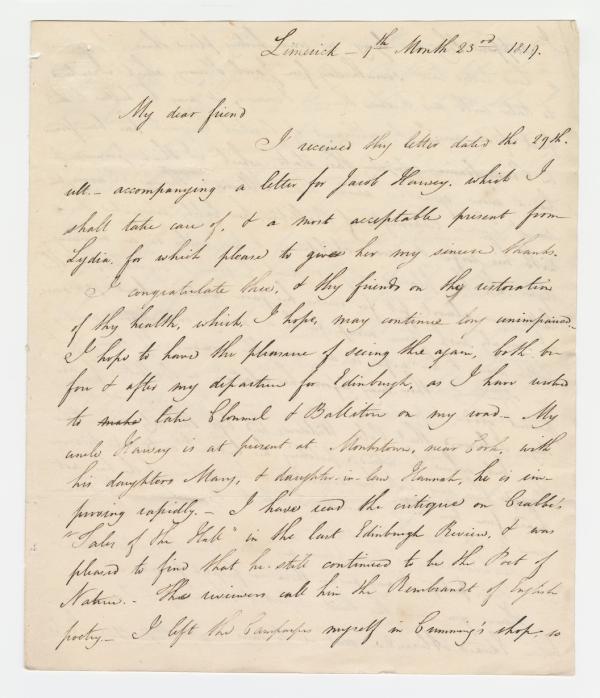 Limerick – 9th Month 23rd 1819.
My dear friend
I received thy letter dated the 29th.
ult. – accompanying a letter for Jacob Harvey, which I
shall take care of, & a most acceptable present from
Lydia, for which please to give her my sincere thanks.
I congratulate thee, & thy friends on thy restoration
of thy health, which, I hope, may continue long unimpaired. –
I hope to have the pleasure of seeing thee again, both be-
fore & after my departure for Edinburgh, as I have wished
to make take Clonmel & Ballitore on my road – My
uncle Harvey is at present at Monkstown, near Cork, with
his daughters Mary, & daughter-in-law Hannah, he is im-
proving rapidly. – I have read the critique on Crabbe's
"Tales of the Hall" in the last Edinburgh Review, & was
pleased to find that he still continued to be the Poet of
Nature. – The reviewers call him the Rembrandt of English
poetry – I left the myself in Cumming's shop, so